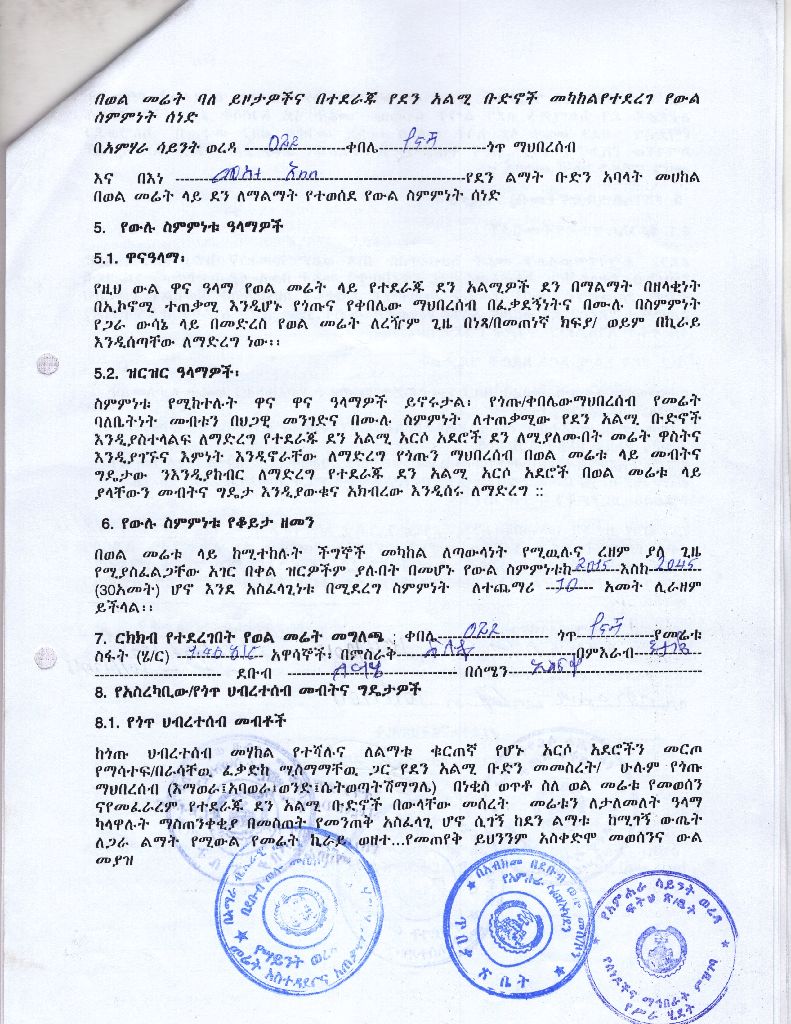 በወል መሬት ባለ ይዞታዎችና በተደራጁ የደን አልሚ ቡድኖች መካከልየተደረገ የውል
ስምምነት ሰነድ
በአምሃራ ሳይንት ወረዳ ---------022-----------ቀበሌ-------------------ጎጥ ማህበረሰብ
እና በእነ ------------------------------የደን ልማት ቡድን አባላት መሀከል
በወል መሬት ላይ ደን ለማልማት የተወሰደ የውል ስምምነት ሰነድ
5. የውሉ ስምምነቱ ዓላማዎች
5.1. ዋናዓላማ፡
የዚህ ውል ዋና ዓላማ የወል መሬት ላይ የተደራጁ ደን አልሚዎች ደን በማልማት በዘላቂነት
በኢኮኖሚ ተጠቃሚ እንዲሆኑ የጎጡና የቀበሌው ማህበረሰብ በፈቃደኝነትና በሙሉ በስምምነት
የጋራ ውሳኔ ላይ በመድረስ የወል መሬት ለረዥም ጊዜ በነጻ/በመጠነኛ ክፍያ/ ወይም በኪራይ
እንዲሰጣቸው ለማድረግ ነው፡፡
5.2. ዝርዝር ዓላማዎች፡
ስምምነቱ የሚከተሉት ዋና ዋና ዓላማዎች ይኖሩታል፡ የጎጡ/ቀበሌውማህበረሰብ የመሬት
ባለቤትነት መብቱን በህጋዊ መንገድና በሙሉ ስምምነት ለተጠቃሚው የደን አልሚ ቡድኖች
እንዲያስተላልፍ ለማድረግ የተደራጁ ደን አልሚ አርሶ አደሮች ደን ለሚያለሙበት መሬት ዋስትና
እንዲያገኙና እምነት እንዲኖራቸው ለማድረግ የጎጡን ማህበረሰብ በወል መሬቱ ላይ መብትና
ግዴታው ንእንዲያከብር ለማድረግ የተደራጁ ደን አልሚ አርሶ አደሮች በወል መሬቱ ላይ
ያላቸውን መብትና ግዴታ እንዲያውቁና አክብረው እንዲሰሩ ለማድረግ ::
6. የውሉ ስምምነቱ የቆይታ ዘመን
በወል መሬቱ ላይ ከሚተከሉት ችግኞች መካከል ለጣውላነት የሚዉሉና ረዘም ያለ ጊዜ
የሚያስፈልጋቸው አገር በቀል ዝርዎችም ያሉበት በመሆኑ የውል ስምምነቱከ2015---እስከ-2045
(30አመት) ሆኖ እንደ አስፈላጊነቱ በሚደረግ ስምምነት ለተጨማሪ --10-- አመት ሊራዘም
ይችላል፡፡
7. ርክክብ የተደረገበት የወል መሬት መግለጫ ፡ ቀበሌ------022--------- ጎጥ ----------የመሬቱ
ስፋት (ሄ/ር) ------------ አዋሳኞች፡ በምስራቅ---------------------በምእራብ---------
------------------ ደቡብ ------------------------ በሰሜን------------------------
8. የአስረካቢው/የጎጥ ህብረተሰብ መብትና ግዴታዎች
8.1. የጎጥ ህብረተሰብ መብቶች
ከጎጡ ህብረተሰብ መሃከል የተሻሉና ለልማቱ ቁርጠኛ የሆኑ አርሶ አደሮችን መርጦ
የማሳተፍ/በራሳቸዉ ፈቃድከ ሚስማማቸዉ ጋር የደን አልሚ ቡድን መመስረት/ ሁሉም የጎጡ
ማህበረሰብ (እማወራ፤አባወራ፤ወንድ፤ሴትወጣትሽማግሌ) በነቂስ ወጥቶ ስለ ወል መሬቱ የመወሰን
ናየመፈራረም የተደራጁ ደን አልሚ ቡድኖች በውላቸው መሰረት መሬቱን ለታለመለት ዓላማ
ካላዋሉት ማስጠንቀቂያ በመስጠት የመንጠቅ አስፈላጊ ሆኖ ሲገኝ ከደን ልማቱ ከሚገኝ ውጤት
ለጋራ ልማት የሚውል የመሬት ኪራይ ወዘተ...የመጠየቅ ይህንንም አስቀድሞ መወሰንና ውል
መያዝ
የአምሐራ ሳይንት ወረዳ
ፍትህ ጽ/ቤት